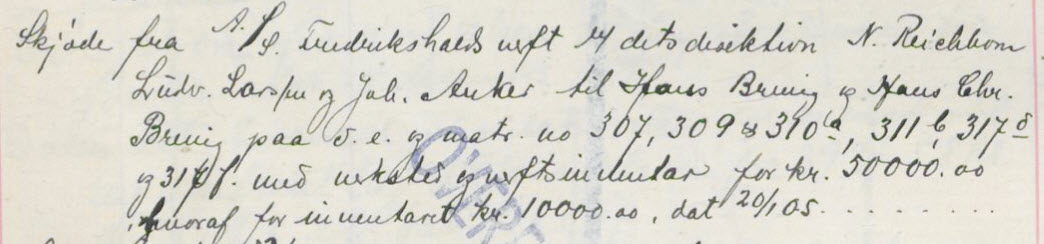 Skjøde fra A/S. Fredrikshalds verft v/ dets direktion N. Reichborn
Ludv. Larsen og Joh. Anker til Hans Brevig og Hans Chr.
Brevig paa d. e. og matr. no 307, 309 & 310a, 311 b, 317 d
og 317 f. med verksted og verftsinventar for kr. 50000.00
, hvoraf for inventaret kr. 10000.00, dat 20/1 05. . . . . . . . .